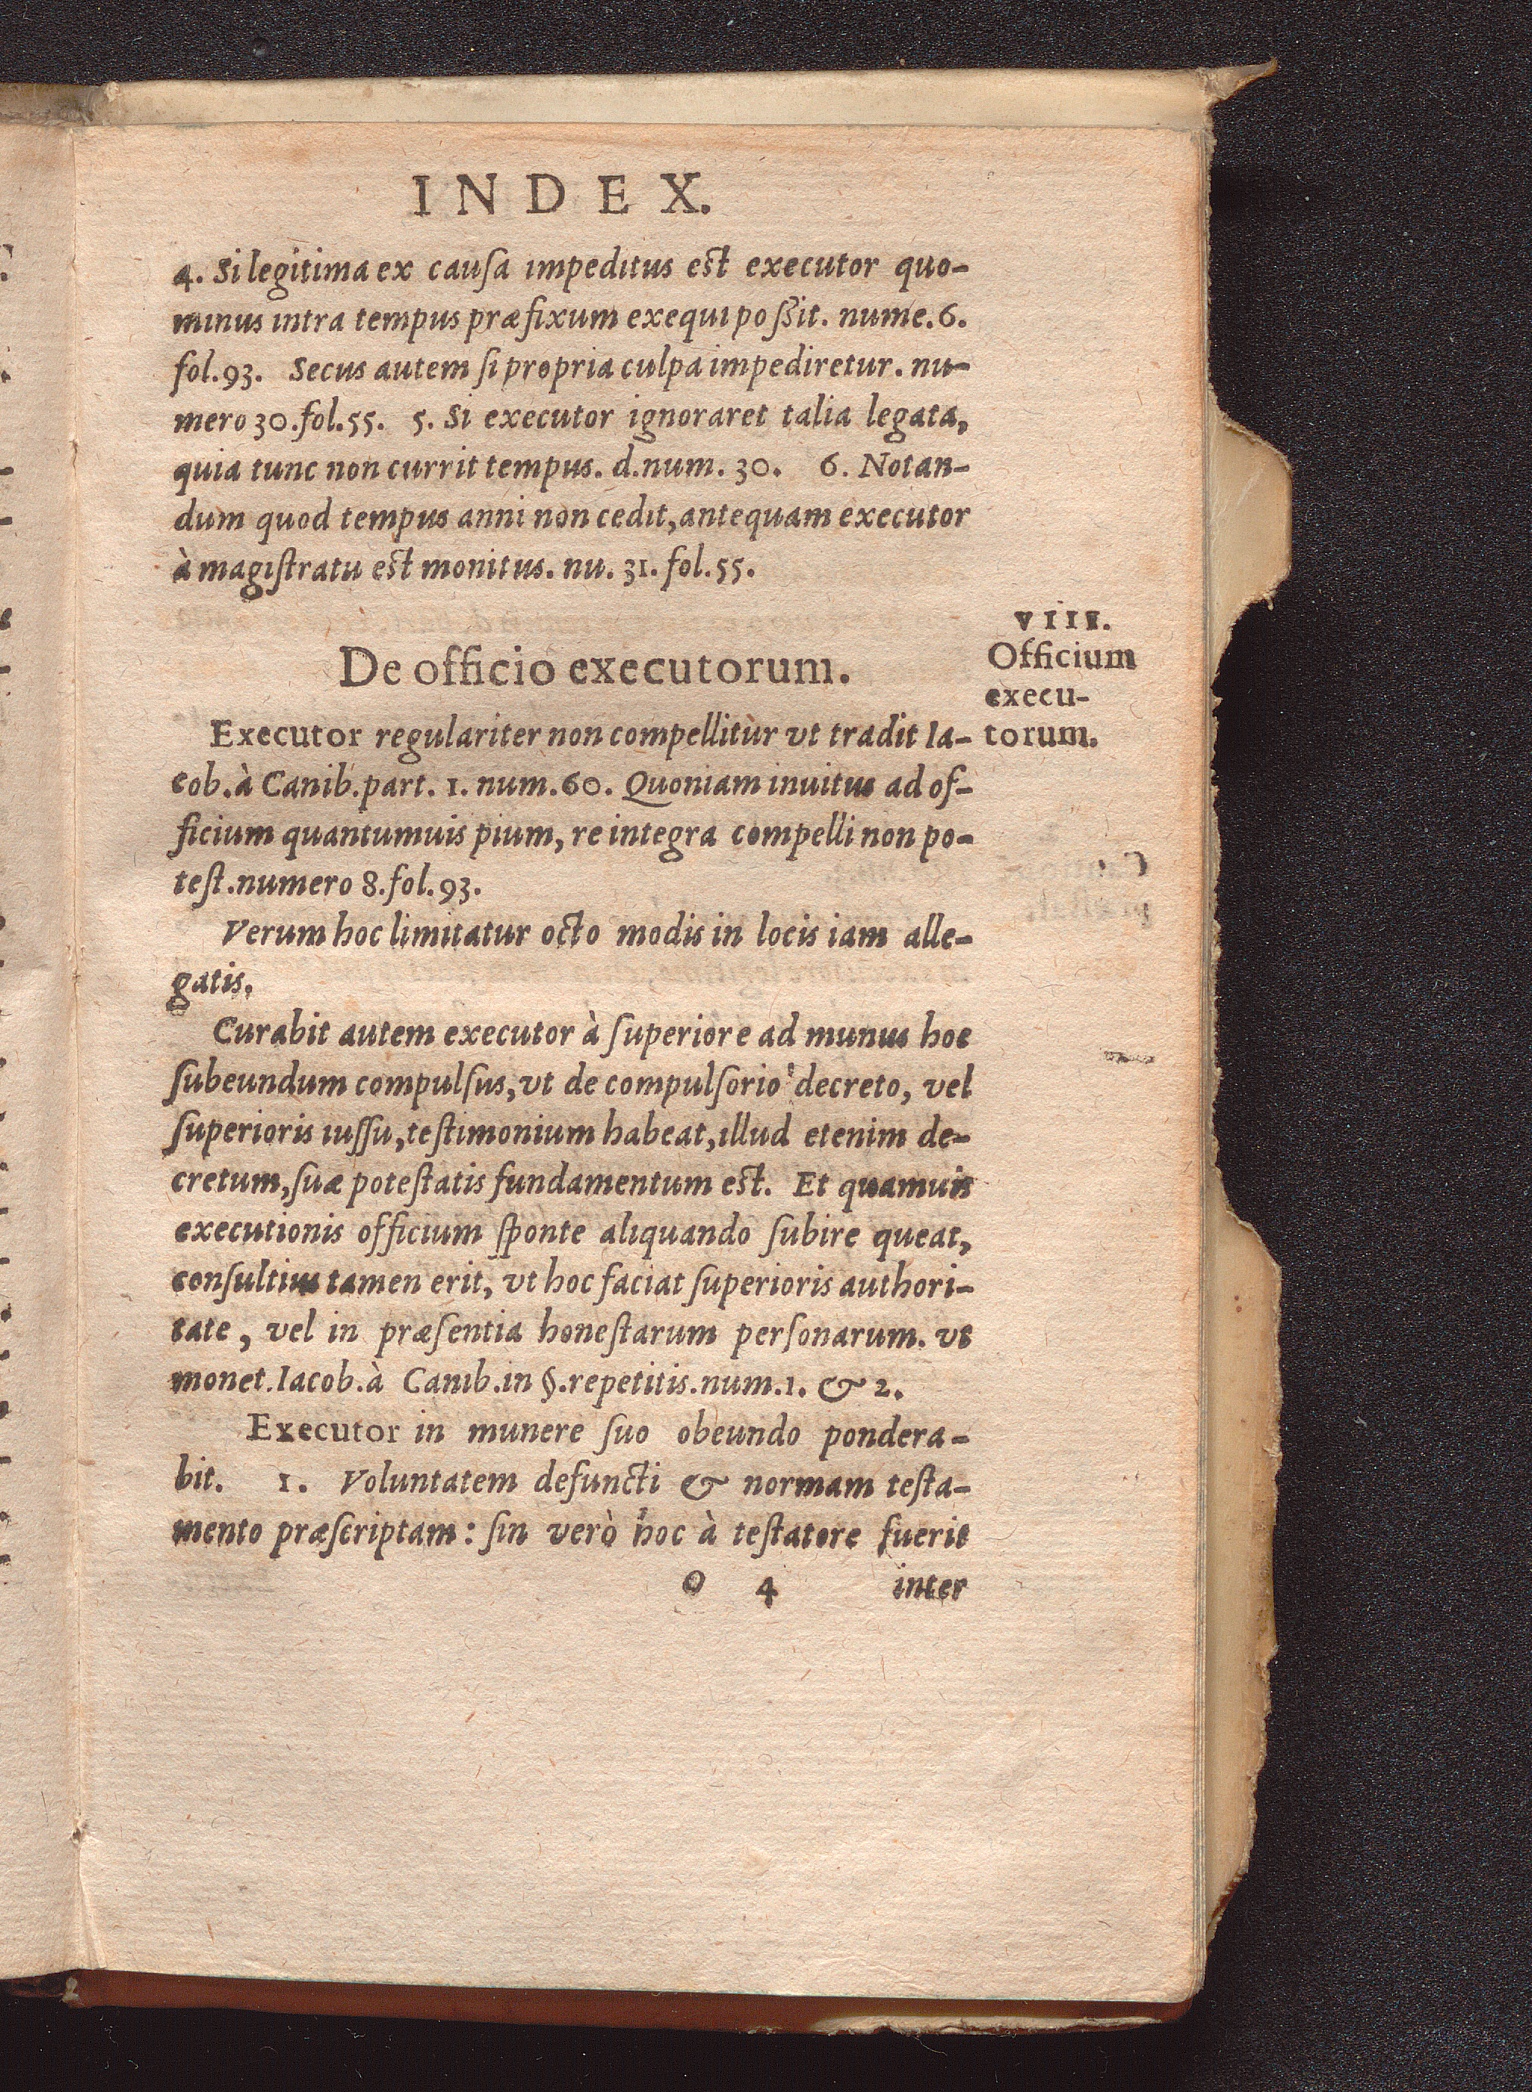 INDEX.
4. Si legitima ex cauſa impeditus est executor quo-
minus intra tempus præfixum exequi poſsit. nume. 6.
fol. 93. Secus autem ſi propria culpa impediretur. nu-
mero 30. fol. 55. 5. Si executor ignoraret talia legata,
quia tunc non currit tempus. d. num. 30. 6. Notan-
dum quod tempus anni non cedit, antequam executor
à magiſtratu est monitus. nu. 31. fol. 55.
VIII.
Officium
execu-
torum.
De officio executorum.
Executor regulariter non compellitur vt tradit Ia-
cob. à Canib. part. 1. num. 60. Quoniam inuitus ad of-
ficium quantumuis pium, re integra compelli non po-
teſt. numero 8. fol. 93.
Verum hoc limitatur octo modis in locis iam alle-
gatis.
Curabit autem executor à ſuperiore ad munus hoc
ſubeundum compulſus, vt de compulſorio decreto, vel
ſuperioris iuſſu, teſtimonium habeat, illud etenim de-
cretum, ſuæ poteſtatis fundamentum est. Et quamuis
executionis officium ſponte aliquando ſubire queat,
conſultius tamen erit, vt hoc faciat ſuperioris authori-
tate, vel in præſentia honeſtarum perſonarum. vt
monet. Iacob. à Canib. in §. repetitis. num. 1. & 2.
Executor in munere ſuo obeundo pondera-
bit. 1. Voluntatem defuncti & normam teſta-
mento præſcriptam: ſin verò hoc à teſtatore fuerit
O 4 inter